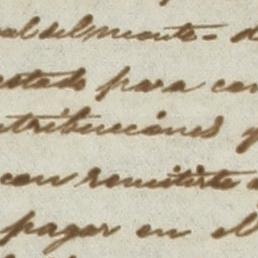 al del monte - d
estado para con
ntribuciones y
con remitirte a
pagar en el